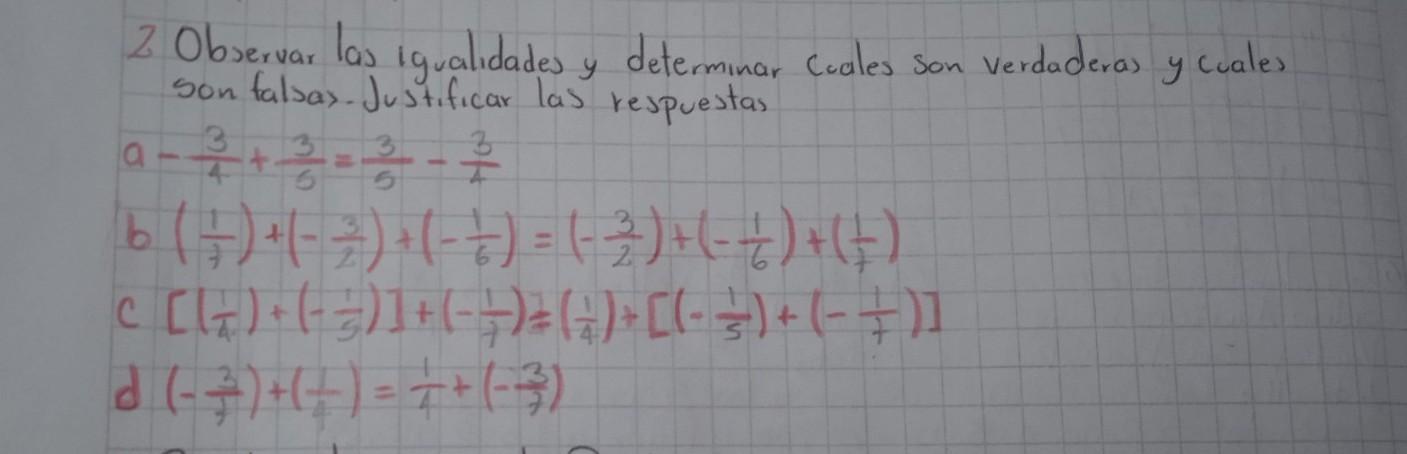 2 Observar las igualidades y determinar Cuales son verdaderas y cuales
son falsas. Justificar las respuestas
a - 3/4 + 3/5 = 3/5 - 3/4
b (1/7) + (- 3/2) + (- 1/6) = (- 3/2) + (- 1/6) + (1/7)
c [(1/4) + (- 1/5)] + (- 1/7) = (1/4) + [(- 1/5) + (- 1/7)]
d (- 3/7) + (1/4) = 1/4 + (- 3/7)